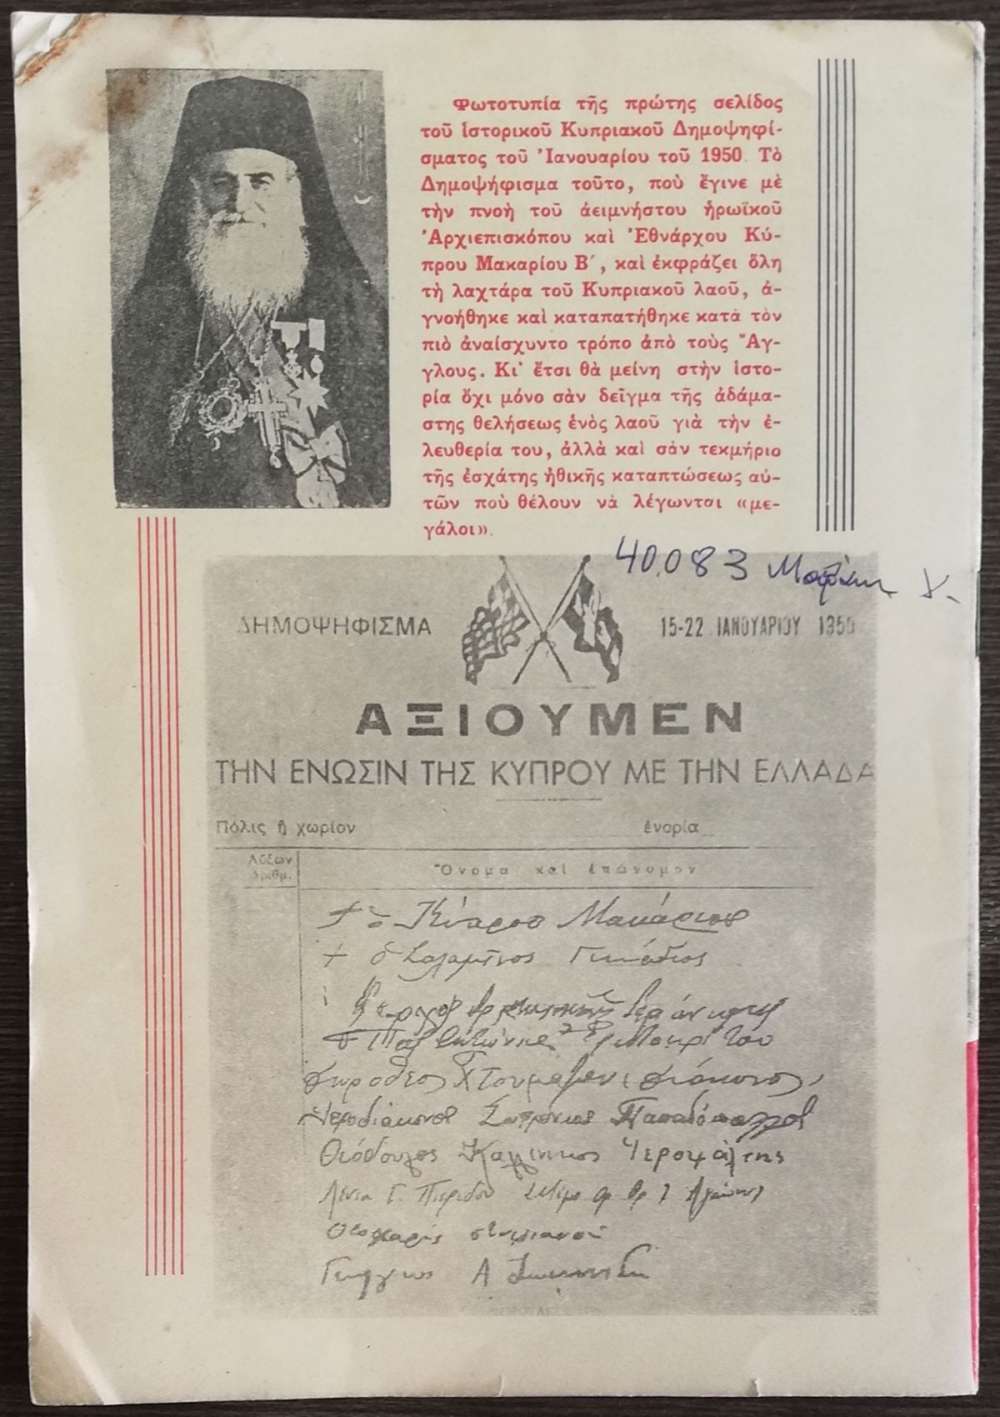 Φωτοτυπία τῆς πρώτης σελίδος
τοῦ ἱστορικοῦ Κυπριακοῦ Δημοψηφί-
σματος τοῦ Ἰανουαρίου τοῦ 1950. Τὸ
Δημοψήφισμα τοῦτο, ποὺ ἔγινε μὲ
τὴν πνοὴ τοῦ ἀειμνήστου ἡρωϊκοῦ
Ἀρχιεπισκόπου καὶ Ἐθνάρχου Κύ-
πρου Μακαρίου Β´, καὶ ἐκφράζει ὅλη
τὴ λαχτάρα τοῦ Κυπριακοῦ λαοῦ, ἀ-
γνοήθηκε καὶ καταπατήθηκε κατὰ τὸν
πιὸ ἀναίσχυντο τρόπο ἀπὸ τοὺς Ἄγ-
γλους. Κι' ἔτσι θὰ μείνη στὴν ἱστο-
ρία ὄχι μόνο σὰν δεῖγμα τῆς ἀδάμα-
στης θελήσεως ἑνὸς λαοῦ γιὰ τὴν ἐ-
λευθερία του, ἀλλὰ καὶ σὰν τεκμήριο
τῆς ἐσχάτης ἠθικῆς καταπτώσεως αὐ-
τῶν ποὺ θέλουν νὰ λέγωνται «με-
γάλοι».
40.083
ΔΗΜΟΨΗΦΙΣΜΑ
15-22 ΙΑΝΟΥΑΡΙΟΥ 1950
ΑΞΙΟΥΜΕΝ
ΤΗΝ ΕΝΩΣΙΝ ΤΗΣ ΚΥΠΡΟΥ ΜΕ ΤΗΝ ΕΛΛΑΔΑ
Πόλις ἢ χωρίον ἐνορία
Αὔξων ἀριθμ.
Ὄνομα καὶ ἐπώνυμον
† ὁ Κύπρου Μακάριος
† ὁ Σαλαμῖνος Γεννάδιος
Ἱεροδιάκονος Σωφρόνιος Παπαδόπουλλος
Θεόδουλος Καλλίνικος Ἱεροψάλτης
Γεώργιος Α